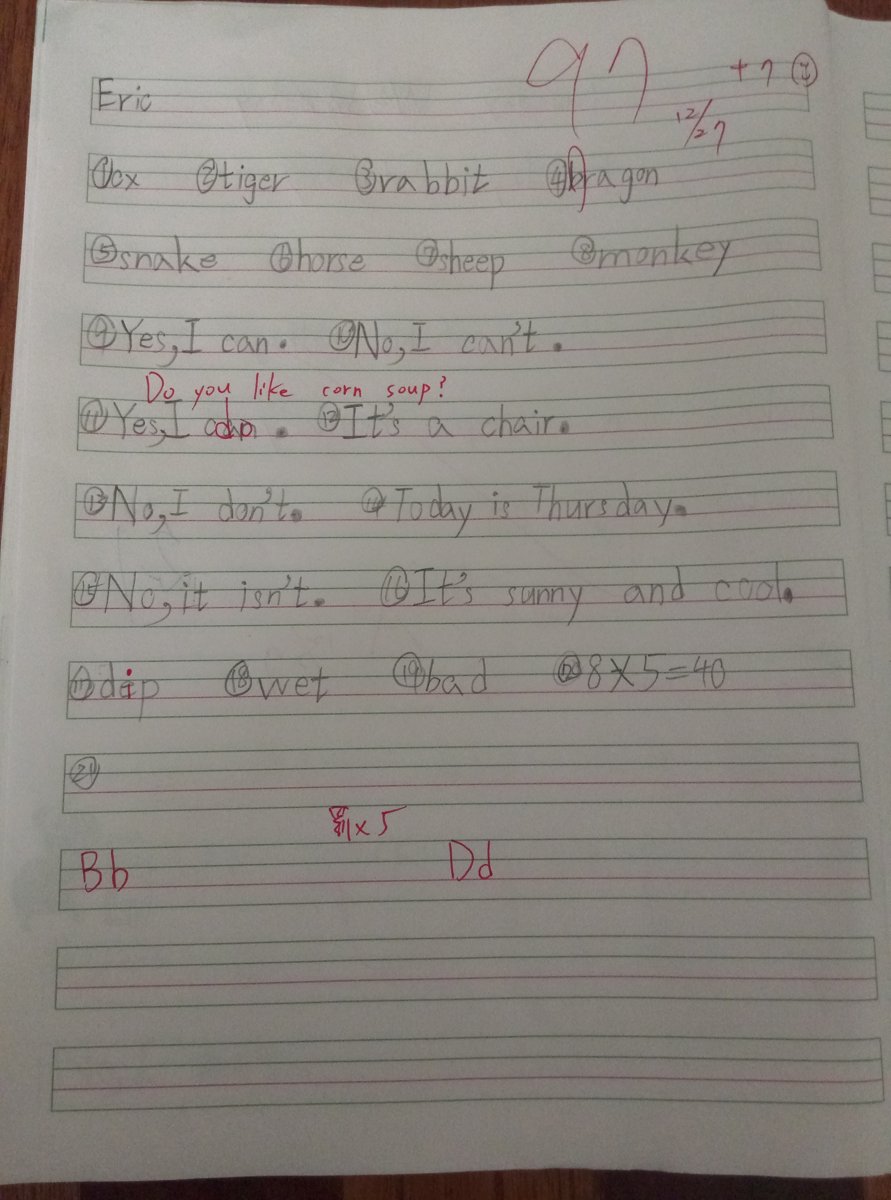 Eric 97 +7
12/27
①ox ②tiger ③rabbit ④bragon
⑤snake ⑥horse ⑦sheep ⑧monkey
⑨Yes,I can. ⑩No,I can't.
Do you like corn soup?
⑪Yes,I do. ⑫It's a chair.
⑬No,I don't. ⑭Today is Thursday.
⑮No,it isn't. ⑯It's sunny and cool.
⑰dip ⑱wet ⑲bad ⑳8×5=40
㉑
罰×5
Bb Dd